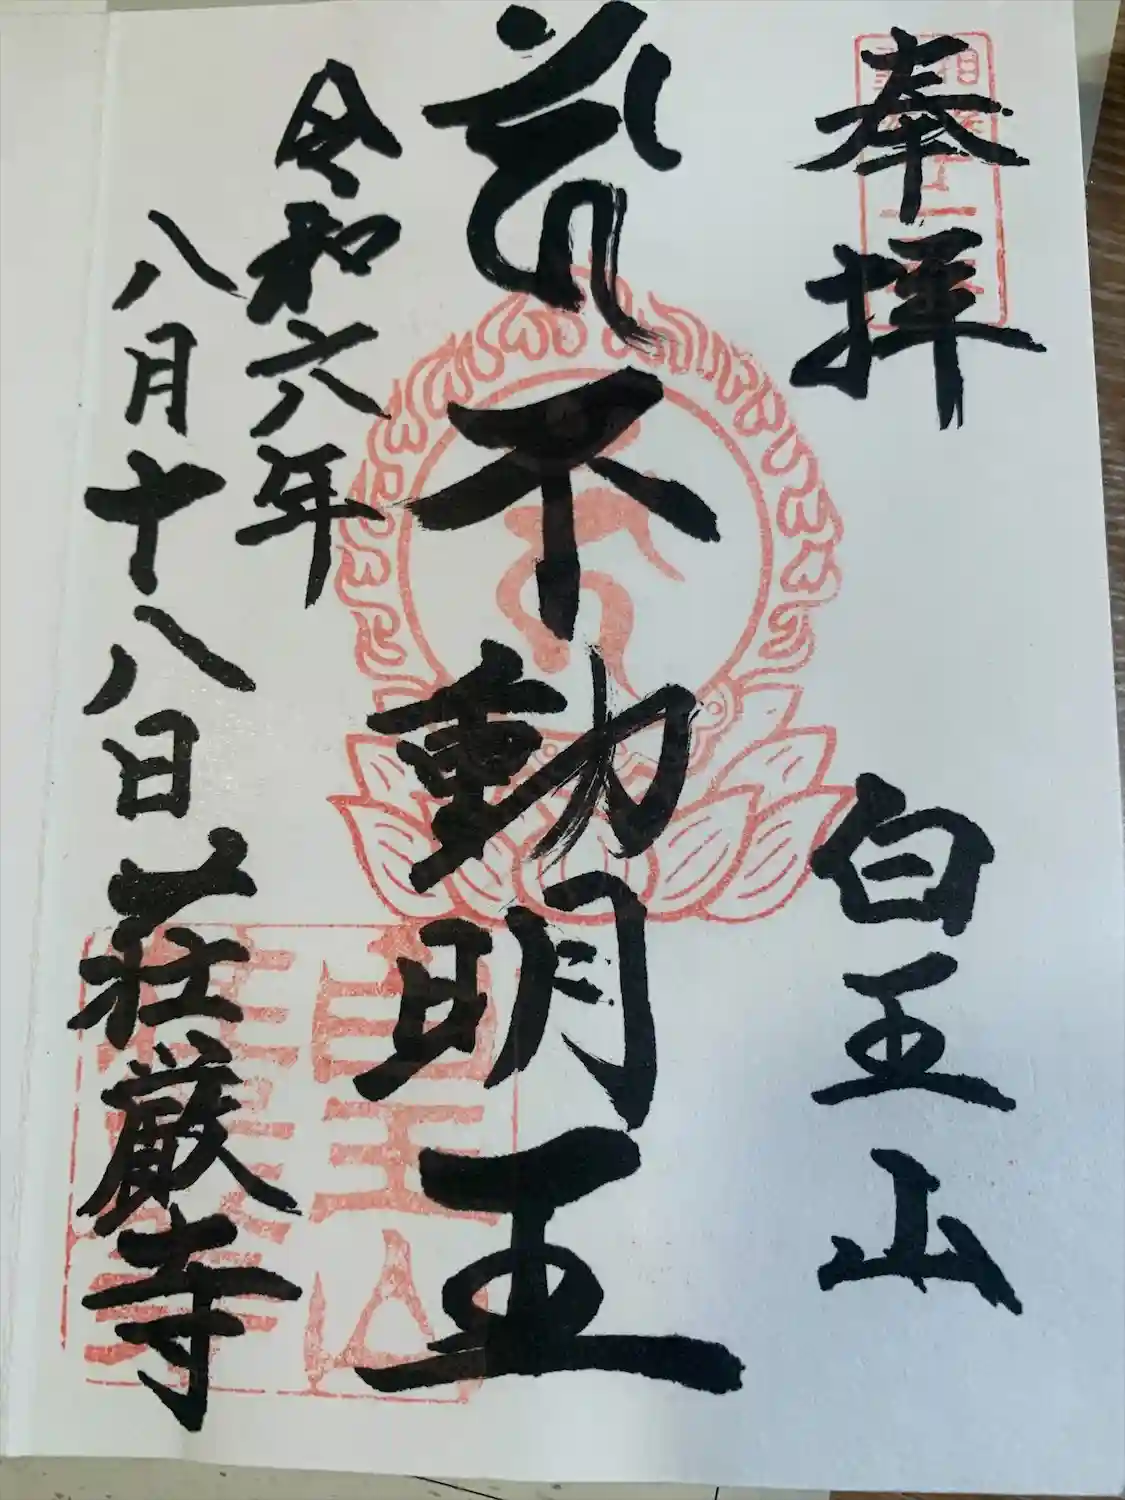 奉拝
白王山
不動明王
令和六年
八月十八日 荘厳寺
白王山
荘厳寺